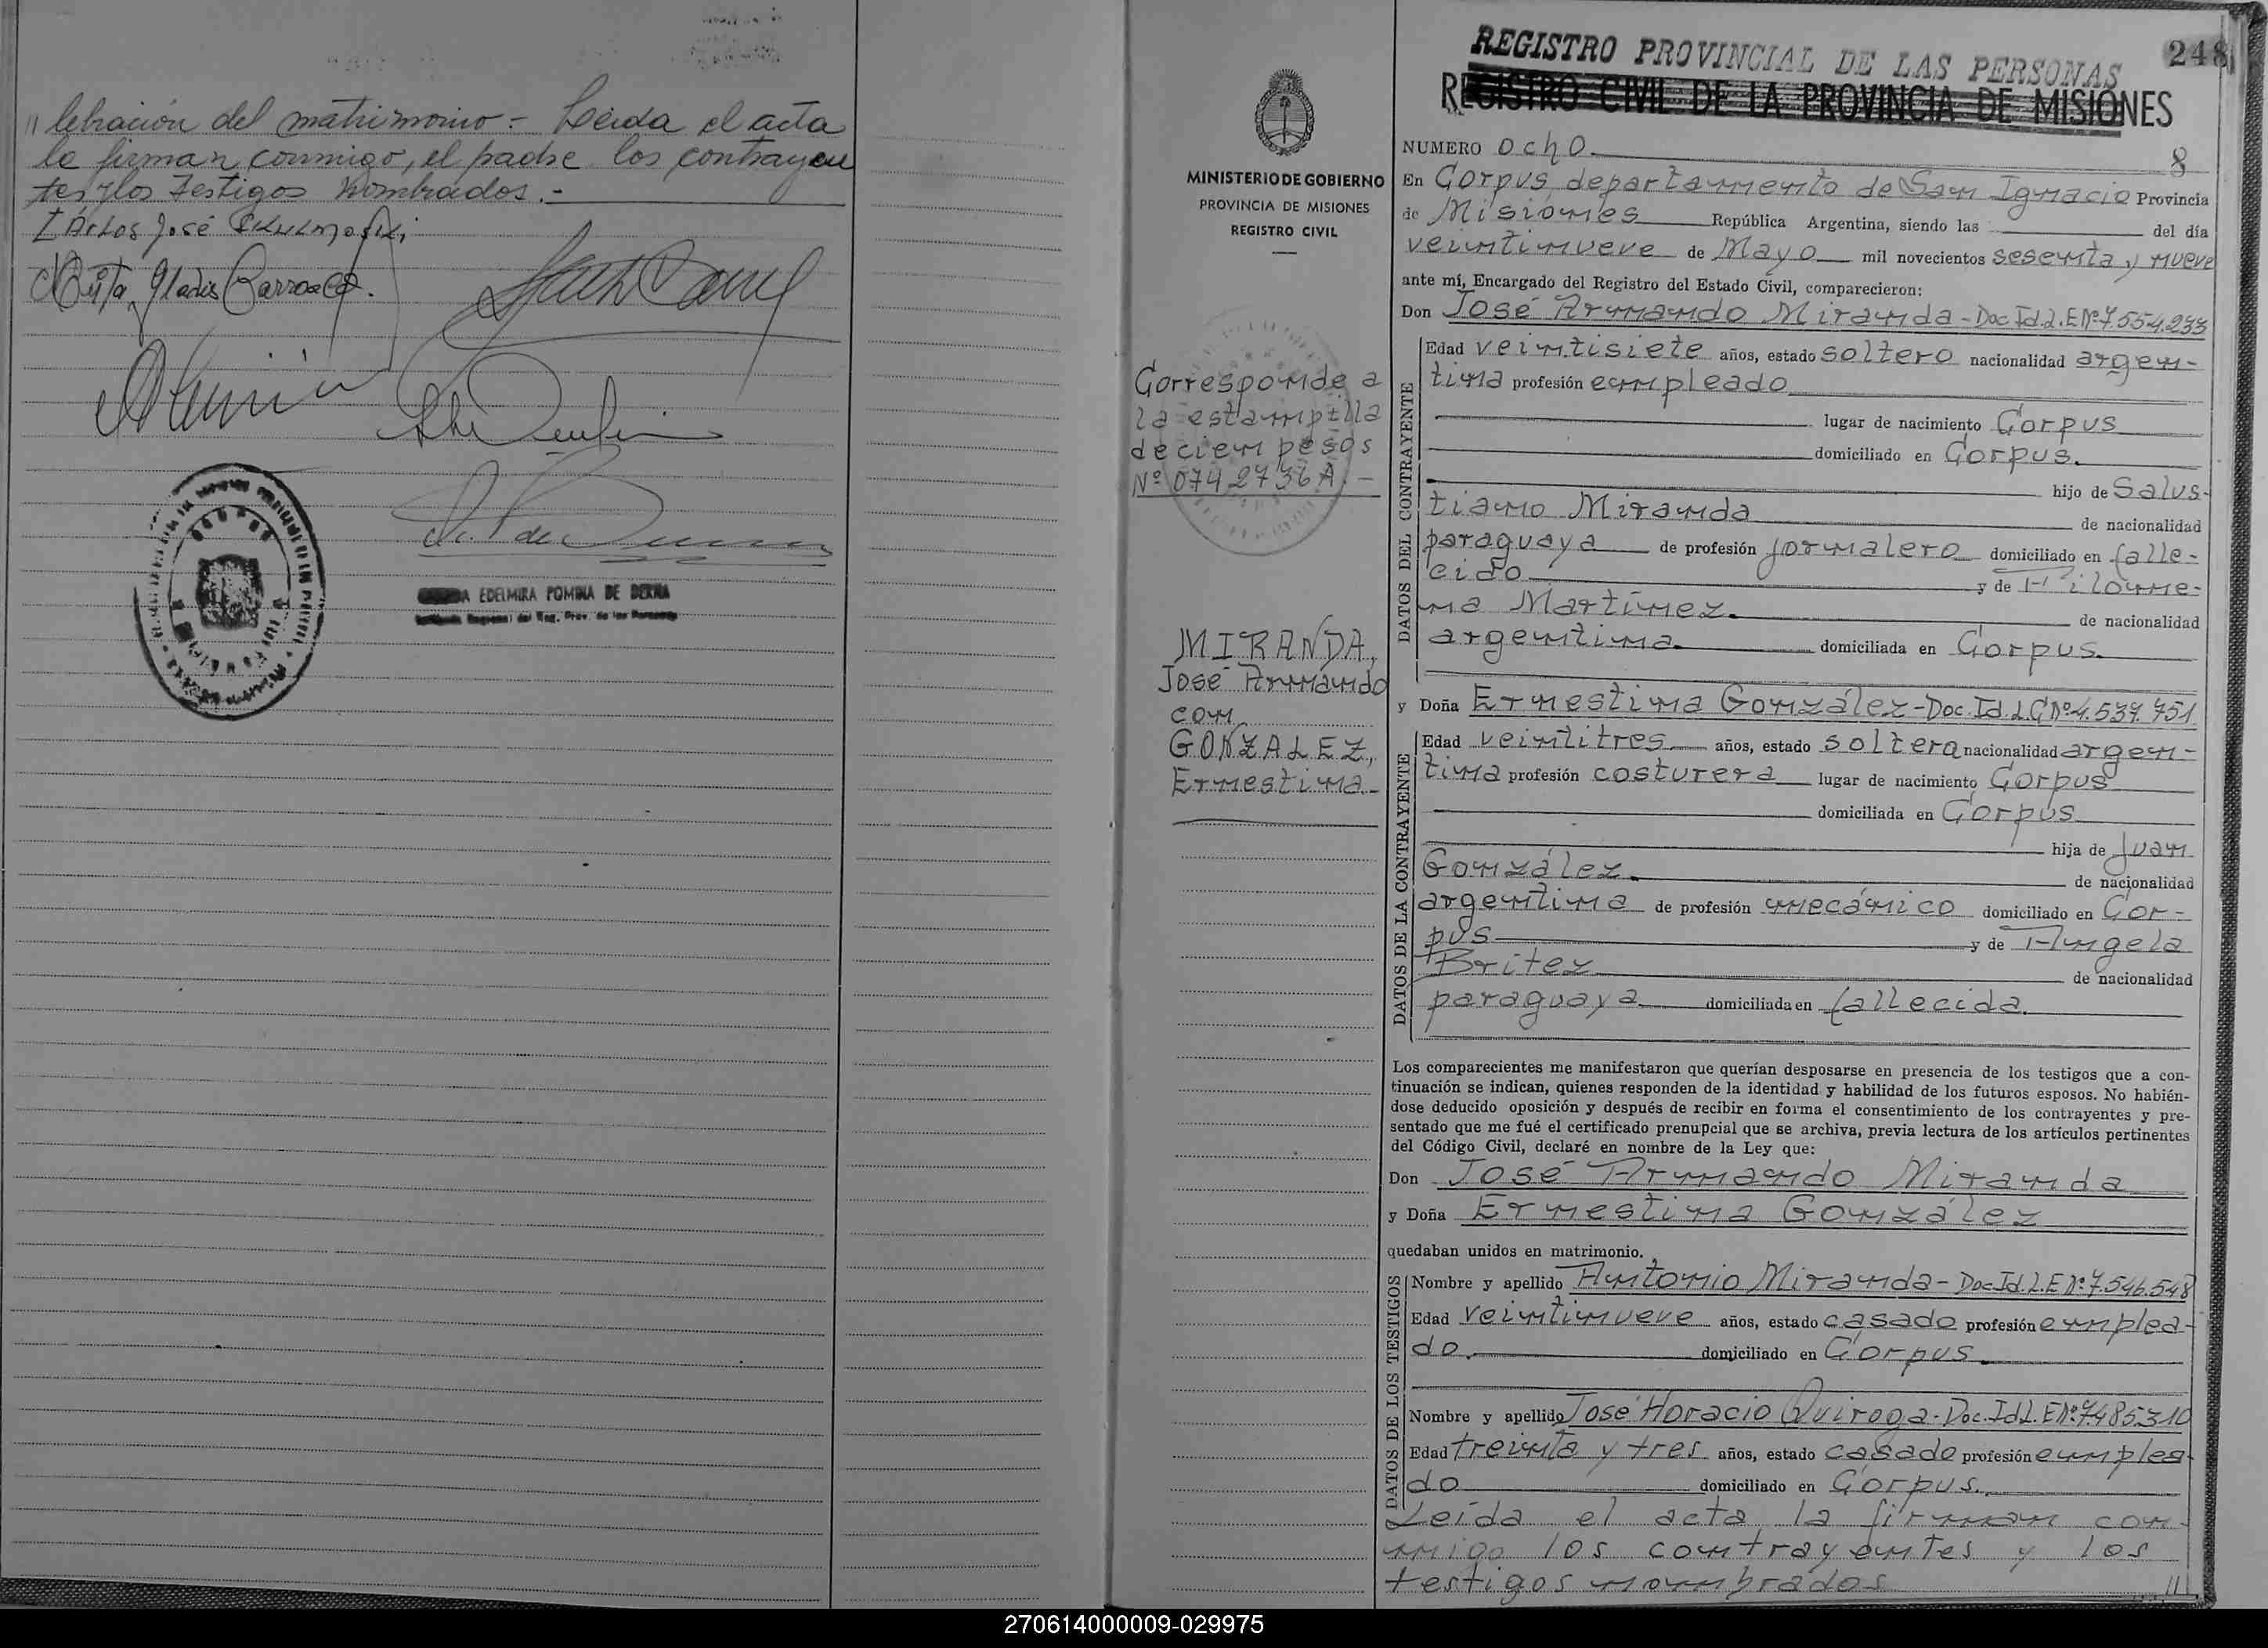 // lebración del matrimonio - Leida el acta
la firman conmigo, el padre los contrayen
tes y los testigos nombrados.-
Carlos José
Gladis Barroso.
EDELMIRA POMINA DE
REGISTRO PROVINCIAL DE LAS PERSONAS
248
REGISTRO CIVIL DE LA PROVINCIA DE MISIONES
MINISTERIO DE GOBIERNO
PROVINCIA DE MISIONES
REGISTRO CIVIL
Corresponde a
la estampilla
de cien pesos
Nº 0742736 A.-
MIRANDA,
José Armando
con
GONZALEZ,
Ernestina.-
NUMERO ocho. 8
En Corpus, departamento de San Ignacio Provincia
de Misiones República Argentina, siendo las del día
veintinueve de Mayo mil novecientos sesenta y nueve
ante mí, Encargado del Registro del Estado Civil, comparecieron:
Don José Armando Miranda - Doc. Id. L.E Nº 7.554.233
DATOS DEL CONTRAYENTE
Edad veintisiete años, estado soltero nacionalidad argen-
tina profesión empleado
lugar de nacimiento Corpus
domiciliado en Corpus.
hijo de Salus-
tiano Miranda de nacionalidad
paraguaya de profesión jornalero domiciliado en falle-
cido y de Filome-
na Martínez. de nacionalidad
argentina domiciliada en Corpus.
y Doña Ernestina González - Doc. Id. L.C Nº 4.537.751
DATOS DE LA CONTRAYENTE
Edad veintitres años, estado soltera nacionalidad argen-
tina profesión costurera lugar de nacimiento Corpus
domiciliada en Corpus
hija de Juan
González. de nacionalidad
argentina de profesión mecánico domiciliado en Cor-
pus y de Angela
Britez de nacionalidad
paraguaya domiciliada en fallecida.
Los comparecientes me manifestaron que querían desposarse en presencia de los testigos que a con-
tinuación se indican, quienes responden de la identidad y habilidad de los futuros esposos. No habién-
dose deducido oposición y después de recibir en forma el consentimiento de los contrayentes y pre-
sentado que me fué el certificado prenupcial que se archiva, previa lectura de los artículos pertinentes
del Código Civil, declaré en nombre de la Ley que:
Don José Armando Miranda
y Doña Ernestina González
quedaban unidos en matrimonio.
DATOS DE LOS TESTIGOS
Nombre y apellido Antonio Miranda - Doc. Id. L.E Nº 7.546.548
Edad veintinueve años, estado casado profesión emplea-
do. domiciliado en Corpus.
Nombre y apellido José Horacio Quiroga - Doc. Id L. E Nº 7.485.310
Edad treinta y tres años, estado casado profesión emplea-
do domiciliado en Corpus.
Leida el acta la firman con-
migo los contrayentes y los
testigos nombrados
270614000009-029975